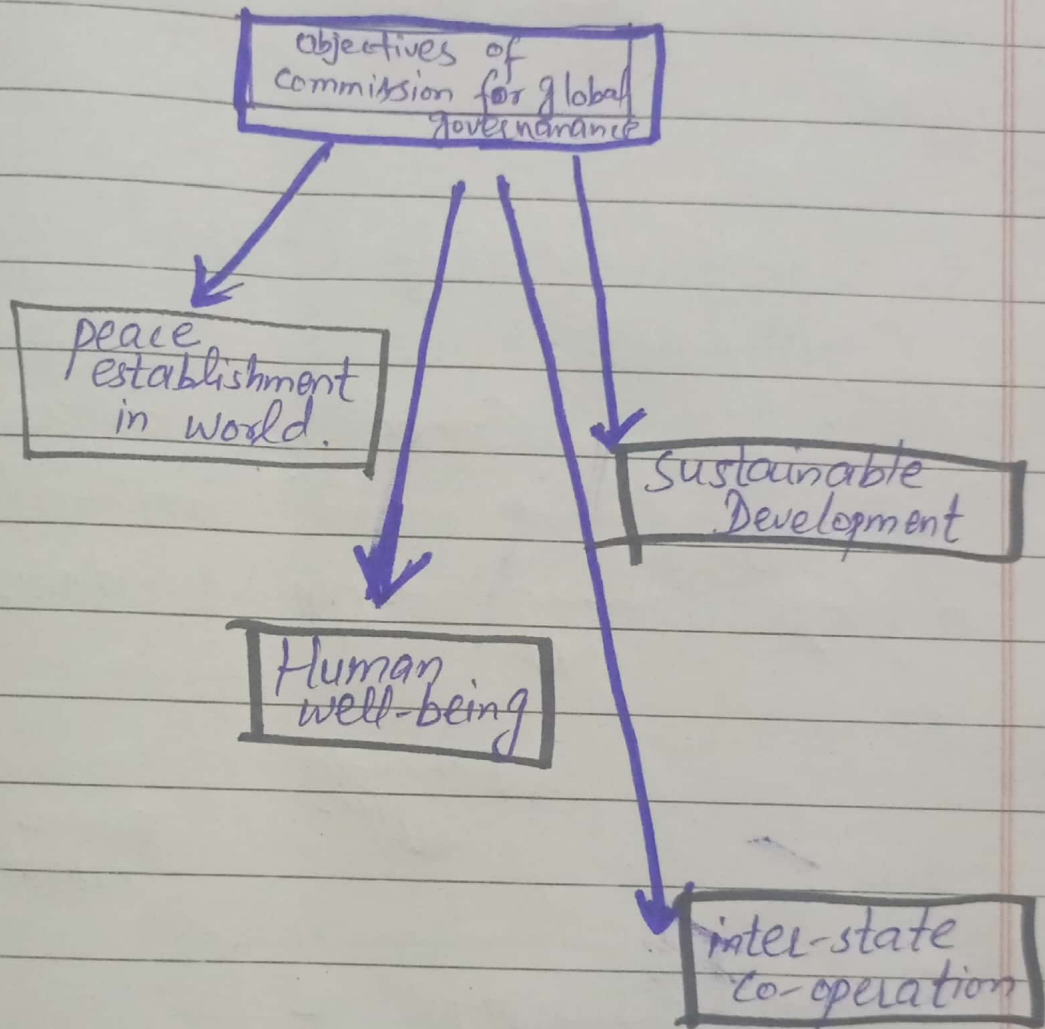 objectives of
commission for global
governarance
peace
establishment
in world.
sustainable
Development
Human
well-being
inter-state
co-operation